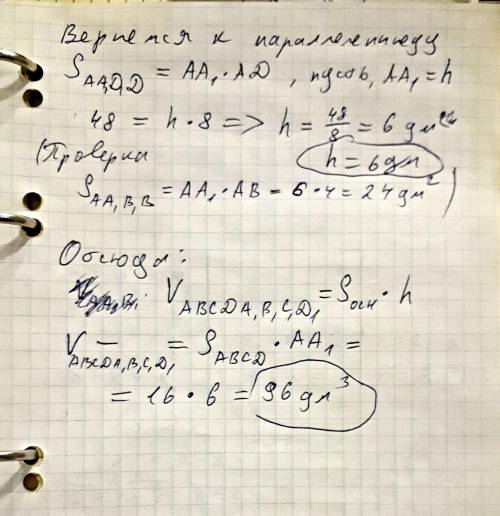 Вернемся к параллелепипеду
S_{AA₁D₁D} = AA₁·AD, пусть, AA₁ = h
48 = h·8 => h = 48/8 = 6 дм
(Проверка h = 6 дм
S_{AA₁B₁B} = AA₁·AB = 6·4 = 24 дм²)
Отсюда:
V_{ABCDA₁B₁C₁D₁} = S_{осн}·h
V_{ABCDA₁B₁C₁D₁} = S_{ABCD}·AA₁ =
= 16·6 = 96 дм³